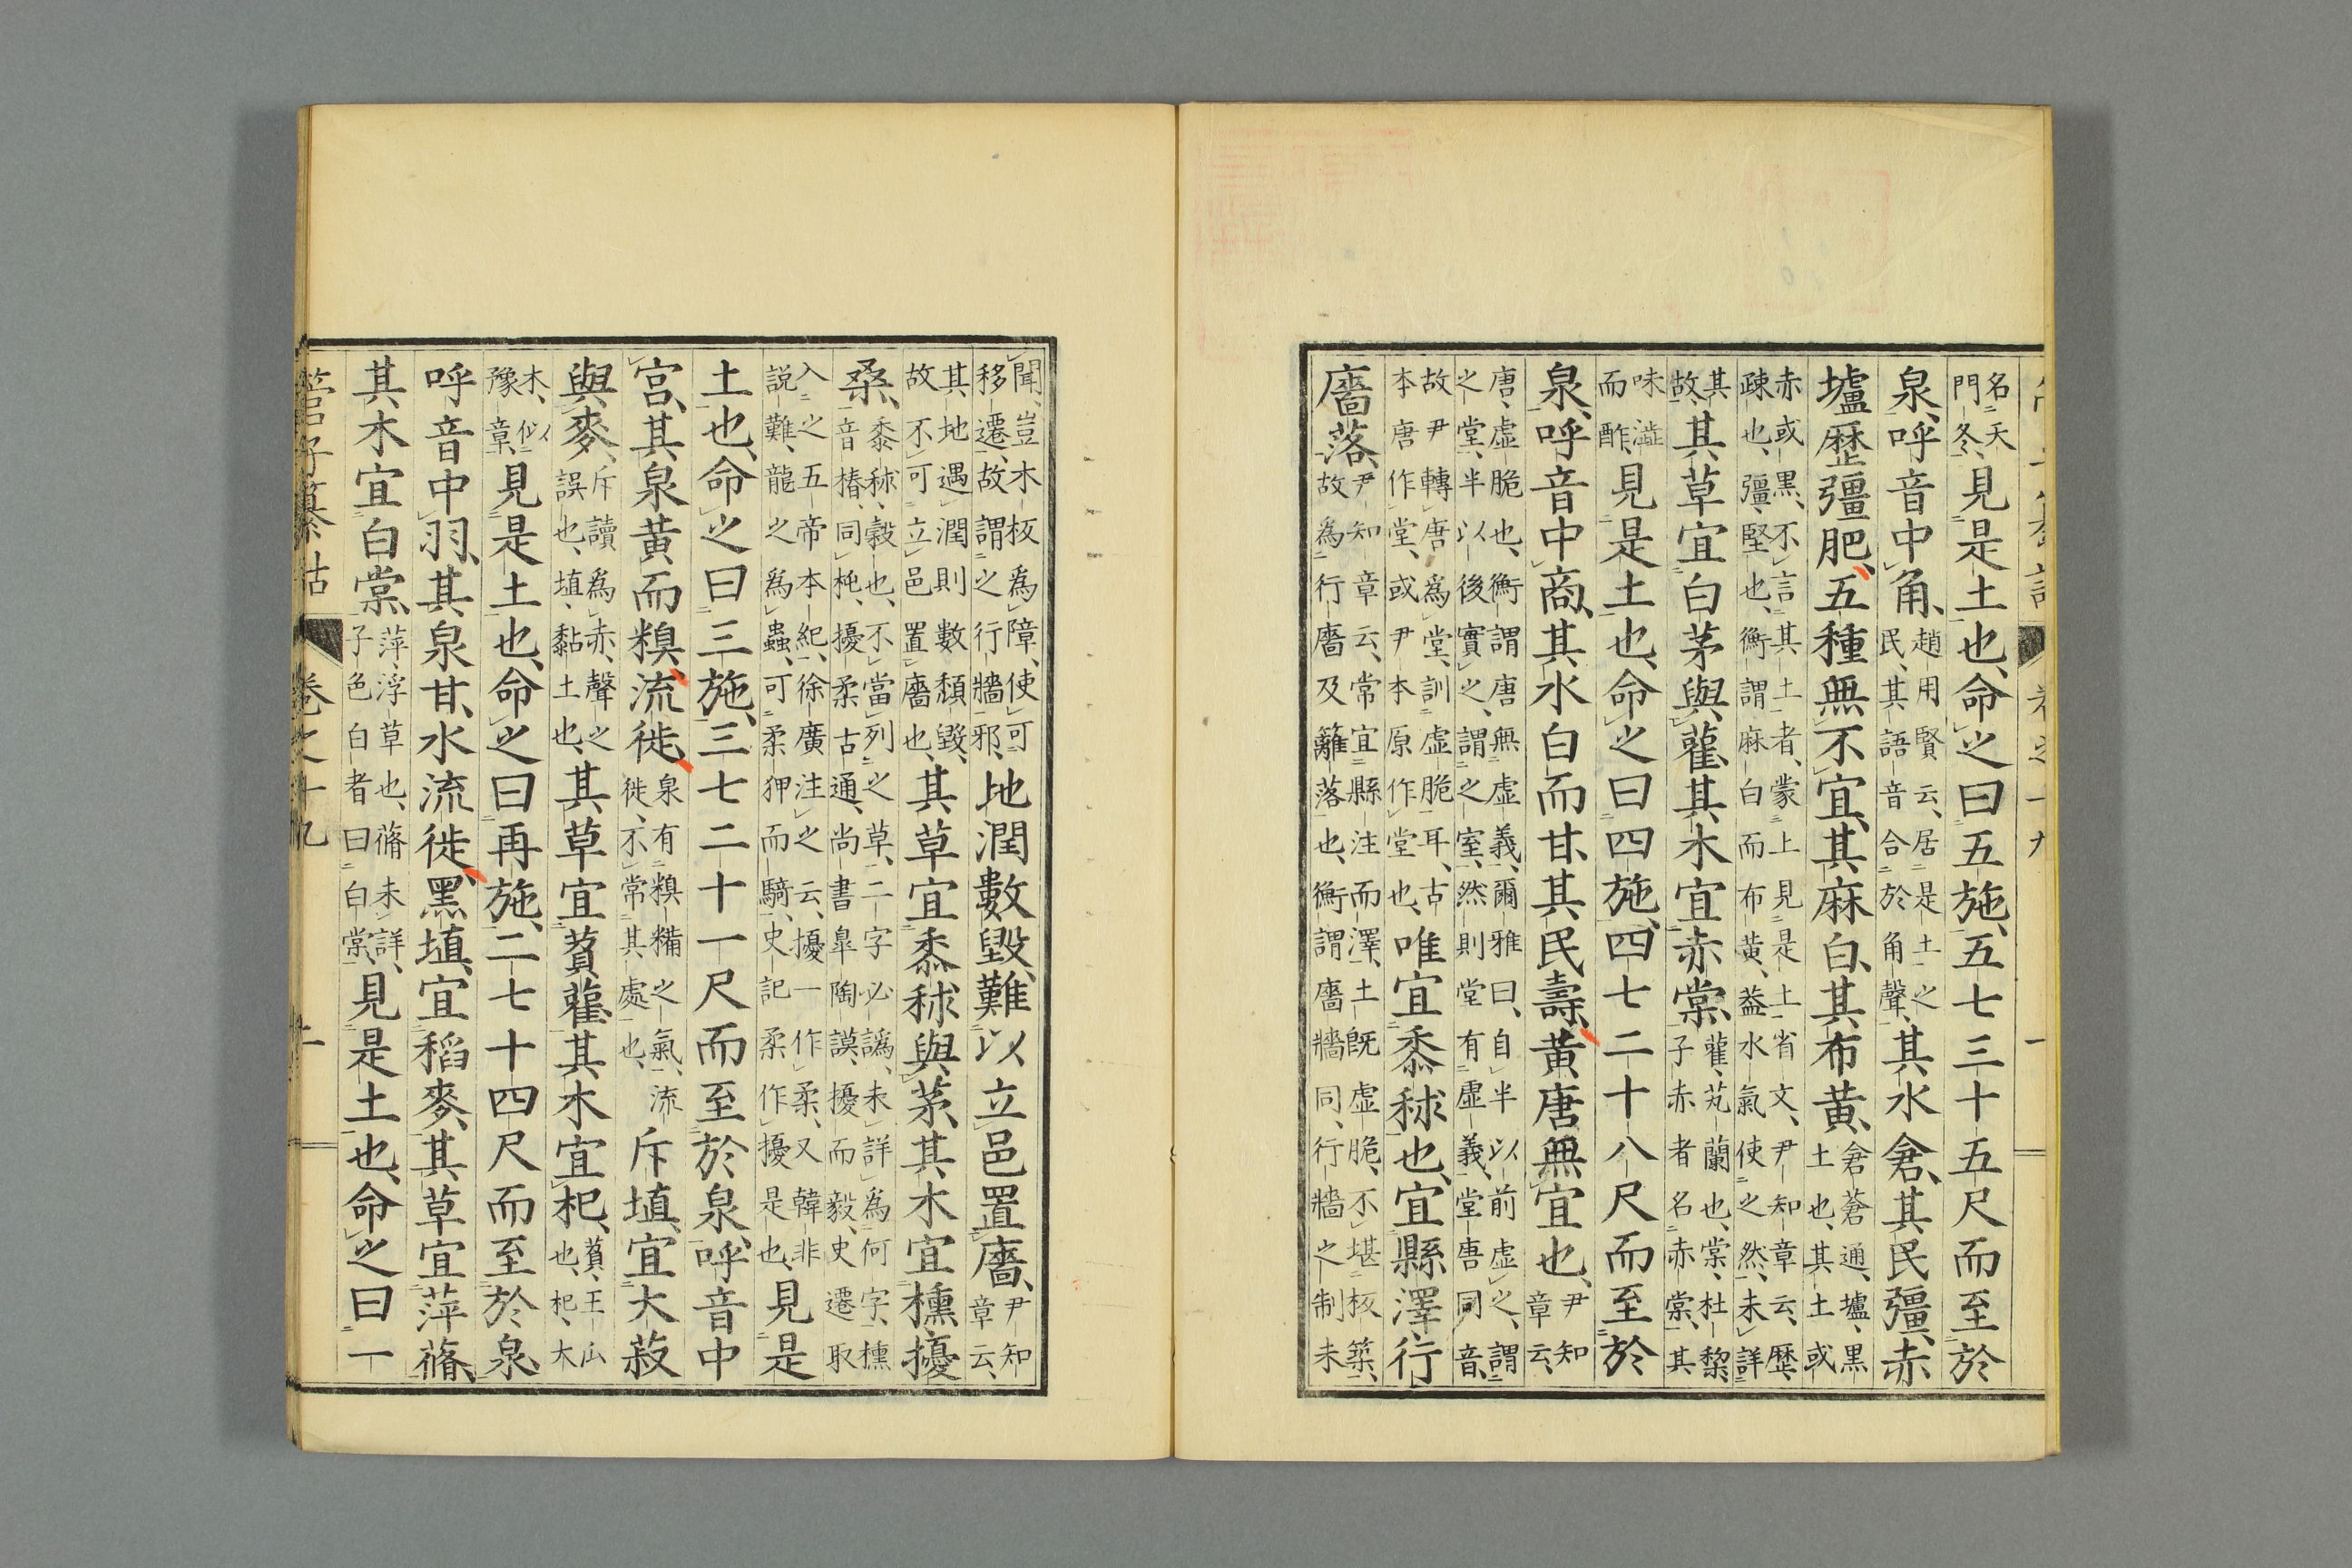 名天
門冬、見是土也、命之曰五施、五七三十五尺而至於
泉、呼音中角、趙用賢云、居是土之
民、其語音合於角聲、其水倉、其民彊、赤
壚歷彊肥、五種無不宜、其麻白、其布黃、倉蒼通、壚、黑
土也、其土或
赤或黑、不言其土者、蒙上見是土省文、尹知章云、歷、
疎也、彊、堅也、衡謂麻白而布黃、蓋水氣使之然、未詳
其
故、其草宜白茅與雚、其木宜赤棠、雚、芄蘭也、棠、杜、棃
子赤者名赤棠、其
味澁
而酢、見是土也、命之曰四施、四七二十八尺而至於
泉、呼音中商、其水白而甘、其民壽、黃唐無宜也、尹知
章云、
唐、虛脆也、衡謂唐無虛義、爾雅曰、自半以前虛之、謂
之堂、半以後實之、謂之室、然則堂有虛義、堂唐同音、
故尹轉唐為堂、訓虛脆耳、古
本唐作堂、或尹本原作堂也、唯宜黍秫也、宜縣澤行
廧落、尹知章云、常宜縣注而澤、土既虛脆、不堪板築、
故為行廧及籬落也、衡謂廧牆同、行牆之制未
聞、豈木板為障、使可
移遷、故謂之行牆邪、地潤數毀、難以立邑置廧、尹知
章云、
其地遇潤則數頹毀、
故不可立邑置廧也、其草宜黍秫與茅、其木宜櫄擾
桑、黍秫、穀也、不當列之草、二字必譌、未詳為何字、櫄
音椿、同杶、擾柔古通、尚書皐陶謨、擾而毅、史遷取
入之五帝本紀、徐廣注之云、擾一作柔、又韓非
說難、龍之為蟲、可柔狎而騎、史記柔作擾是也、見是
土也、命之曰三施、三七二十一尺而至於泉、呼音中
宮、其泉黃而糗、流徙、泉有糗糒之氣、流
徙、不常其處也、斥埴、宜大菽
與麥、斥讀為赤、聲之
誤也、埴、黏土也、其草宜萯雚、其木宜杞、萯、王瓜
也、杞、大
木、似
豫章、見是土也、命之曰再施、二七十四尺而至於泉、
呼音中羽、其泉甘、水流徙、黑埴、宜稻麥、其草宜萍蓨、
其木宜白棠、萍、浮草也、蓨未詳、
子色白者曰白棠、見是土也、命之曰一
管子纂詁 卷之十九 十一